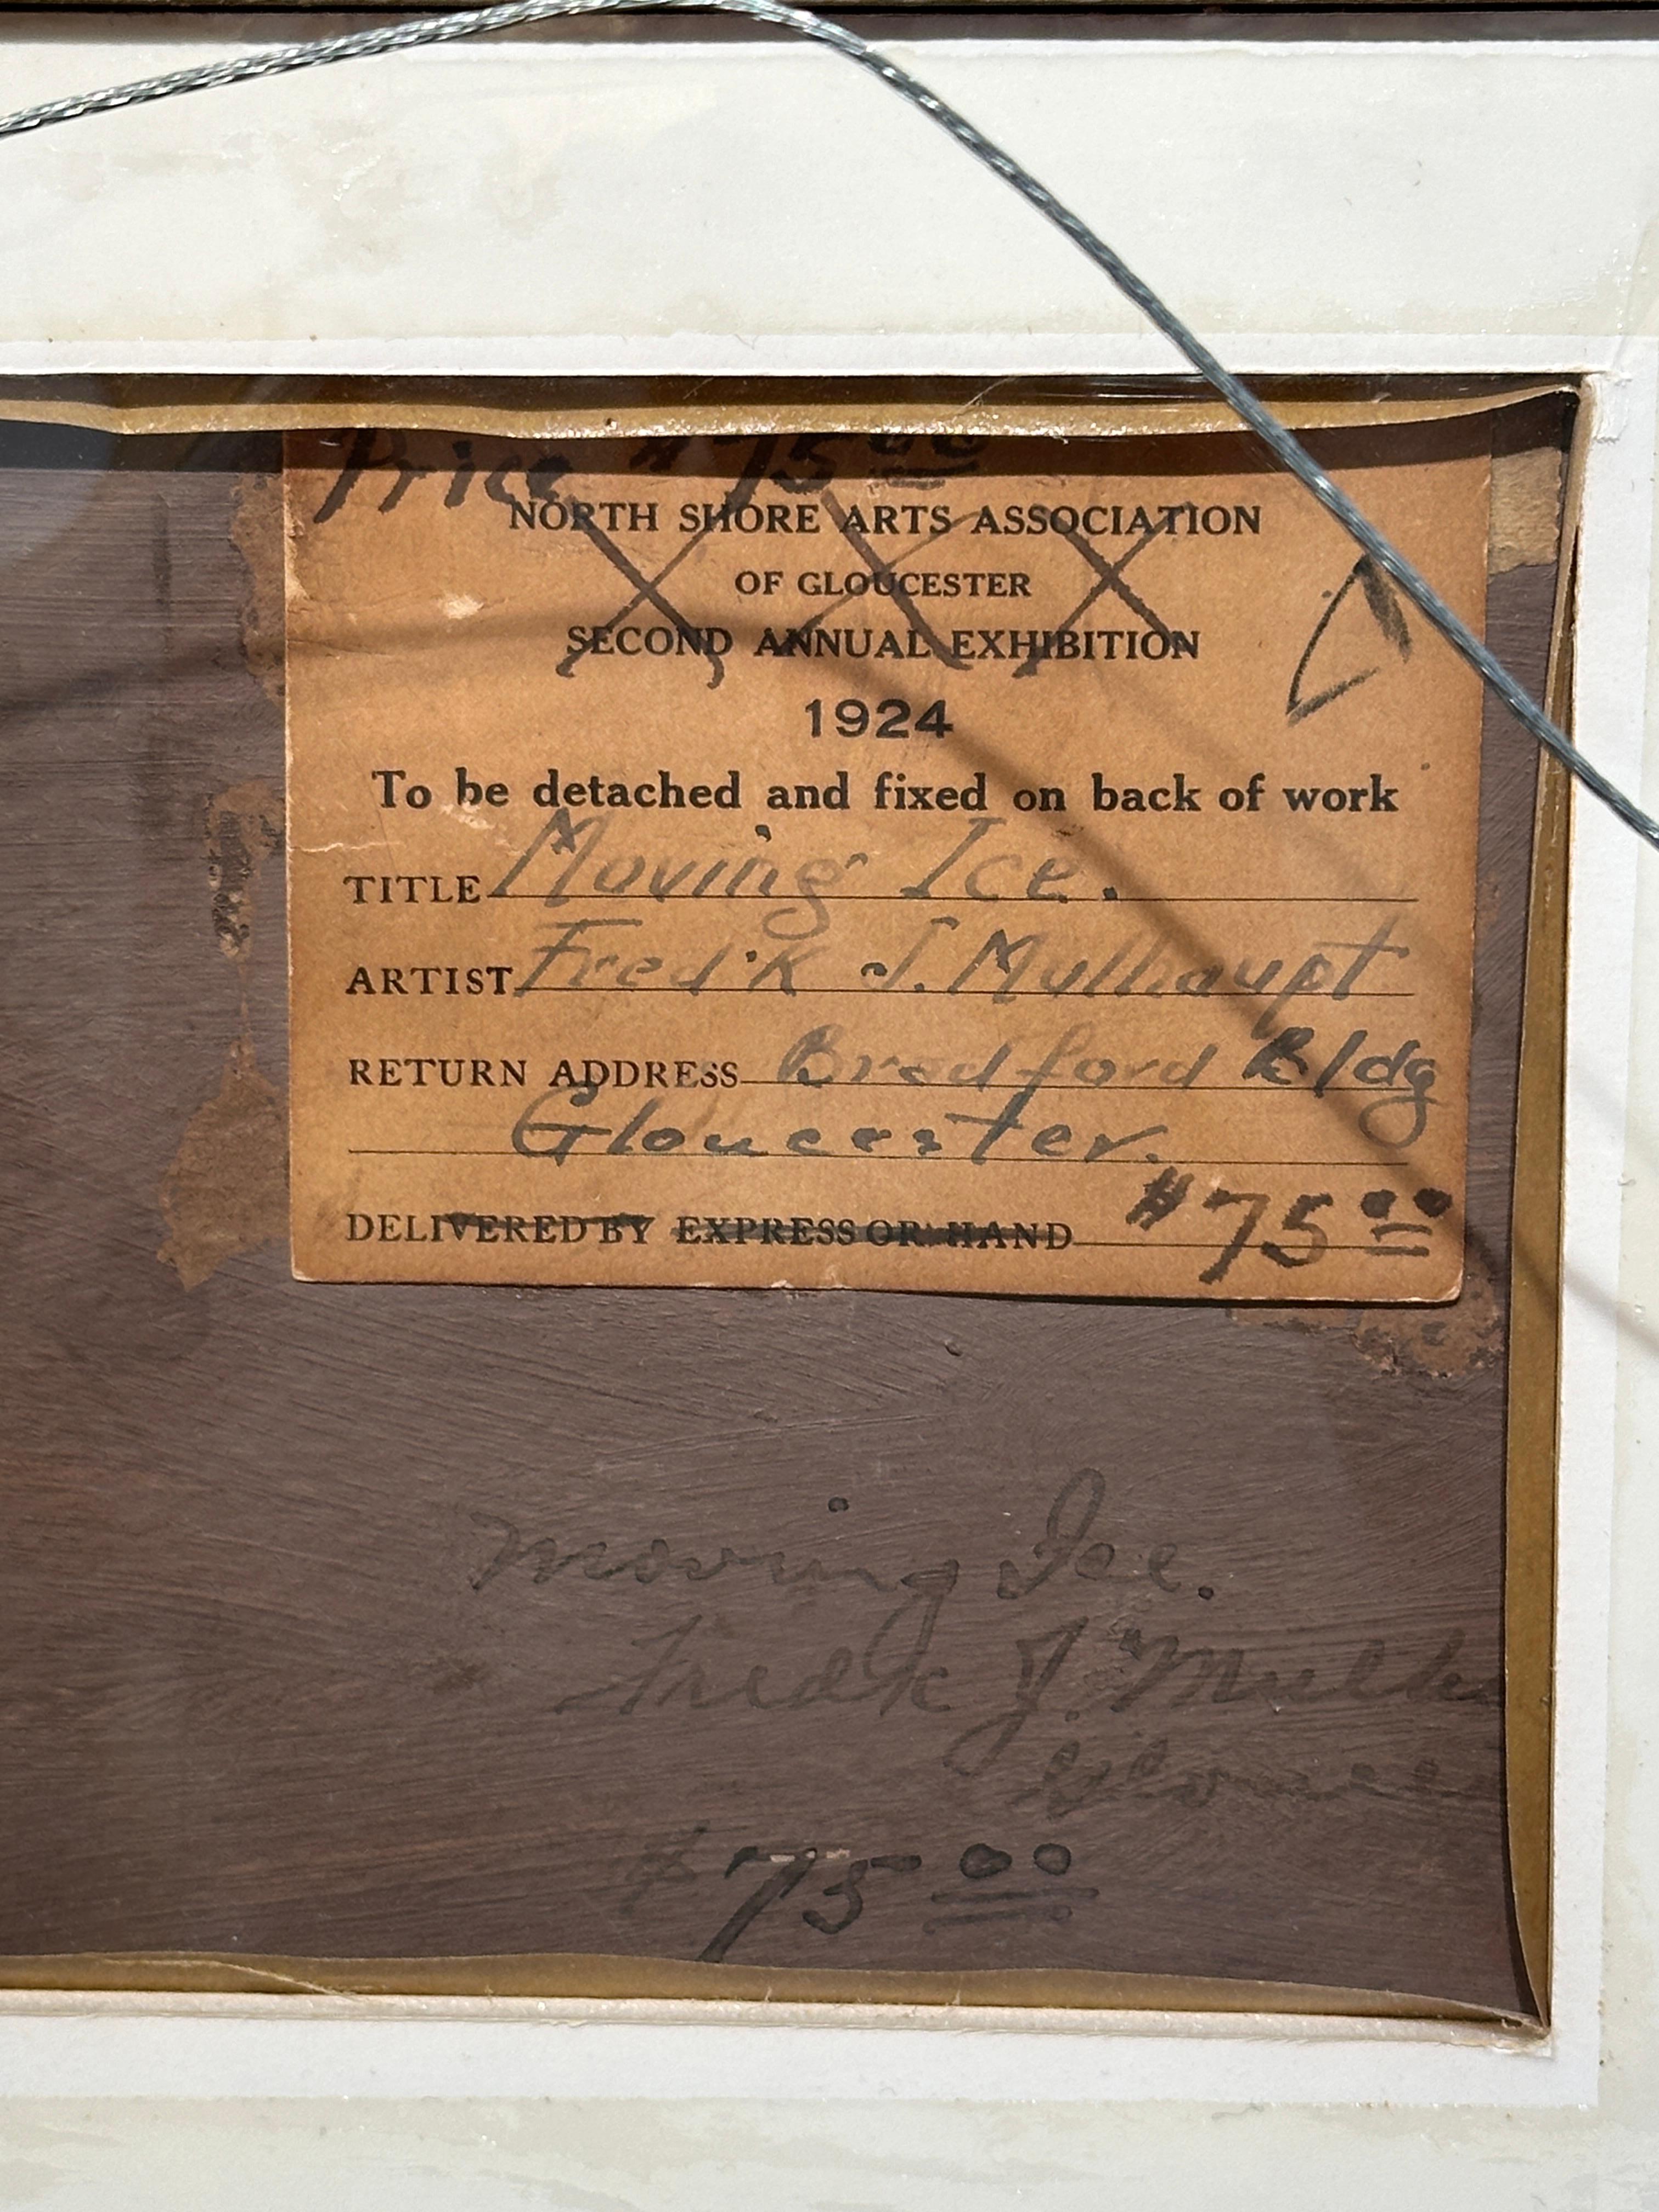 Price $75.00
NORTH SHORE ARTS ASSOCIATION
OF GLOUCESTER
SECOND ANNUAL EXHIBITION
1924
To be detached and fixed on back of work
TITLE Moving Ice.
ARTIST Fred'k J. Mulhaupt
RETURN ADDRESS Bradford Bldg
Gloucester.
DELIVERED BY EXPRESS OR HAND $75.00
Moving Ice.
Fredk J Mulh
Glouces
$75.00